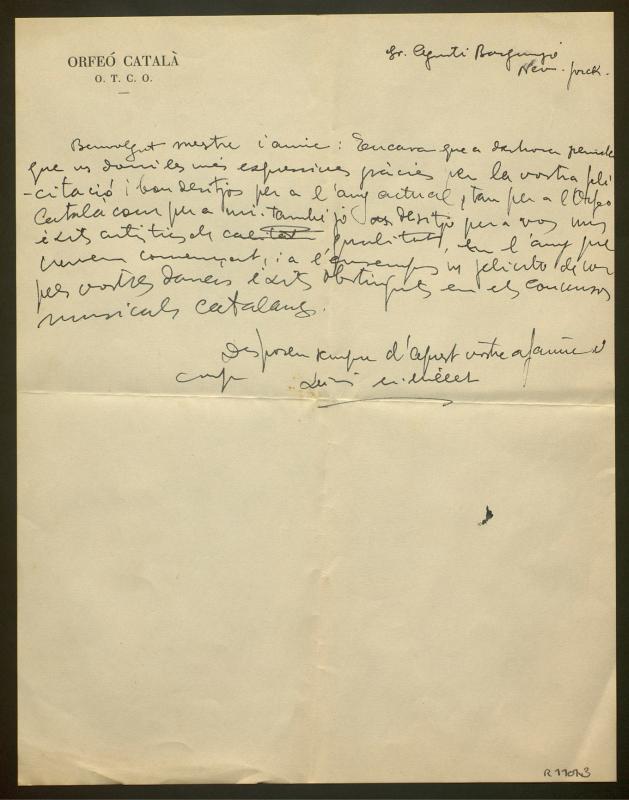 ORFEÓ CATALÀ
O. T. C. O.
Sr. Agustí Borgunyó
New-Jorck.
Benvolgut mestre i amic: Encara que a deshora
que us doni les més expressives gràcies per la vostra feli
-citació i bon desitjos per a l'any actual, tan per a l'Orfeó
Català com per a mi. També jo us desitjo per a vos més
èxits artístics de qualitat, en l'any que
havem començat, i a l'ensemps us felicito de cor
pels vostres èxits obtinguts en els concursos
musicals catalans.
Disposeu sempre d'aquest vostre afm amic
Lluís Millet
R. 11013